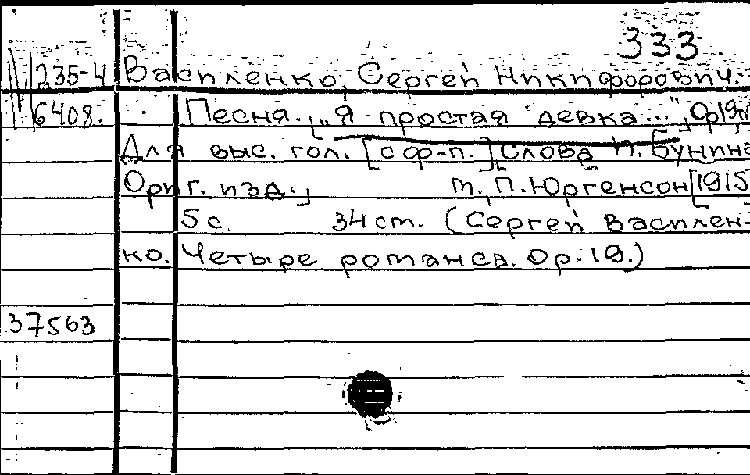 333
235-4 Василенко, Сергей Никифорович.
6408. Песня. „Я простая девка..." Ор 19
Для выс. гол. [с ф-п.] Слова И. Бунина
Ориг. изд. м. П. Юргенсон [1915
5 с. 34 ст. (Сергей Василен-
ко. Четыре романса. Ор. 19.)
37563